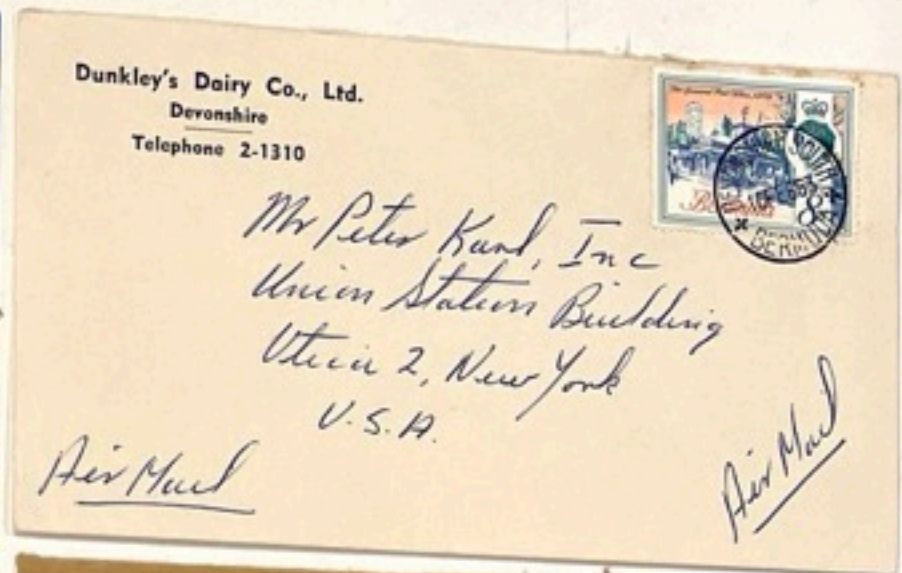 Dunkley's Dairy Co., Ltd.
Devonshire
Telephone 2-1310
Bermuda
BERMUDA
Mr Peter Karl, Inc
Union Station Building
Utica 2, New York
U.S.A.
Air Mail
Air Mail